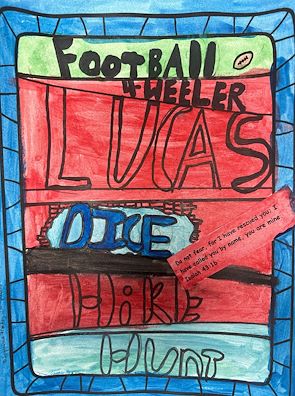 FOOTBALL
4-WEELER
LUCAS
DICE
Do not fear, for I have rescued you; I
have called you by name, you are mine
Isaiah 43:1b
HiKE
HUNT